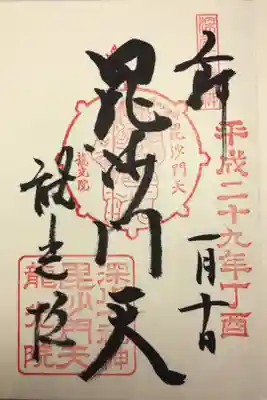 深川七福神
奉拝
平成二十九年丁酉
一月十日
毘沙門天
毘沙門天
龍光院
龍光院
深川七福神
毘沙門天
龍光院